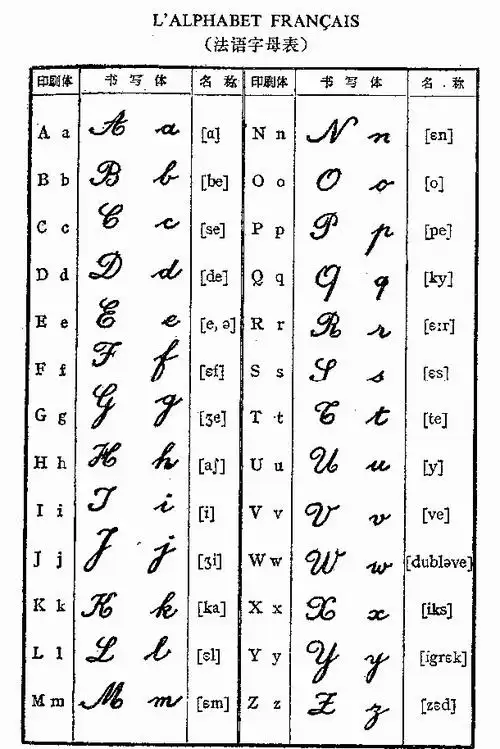 L'ALPHABET FRANÇAIS
(法语字母表)
印刷体 书写体 名称 印刷体 书写体 名.称
A a A a [ɑ] N n N n [ɛn]
B b B b [be] O o O o [o]
C c C c [se] P p P p [pe]
D d D d [de] Q q Q q [ky]
E e E e [e, ə] R r R r [ɛːr]
F f F f [ɛf] S s S s [ɛs]
G g G g [ʒe] T t T t [te]
H h H h [aʃ] U u U u [y]
I i I i [i] V v V v [ve]
J j J j [ʒi] W w W w [dubləve]
K k K k [ka] X x X x [iks]
L l L l [ɛl] Y y Y y [igrɛk]
M m M m [ɛm] Z z Z z [zɛd]